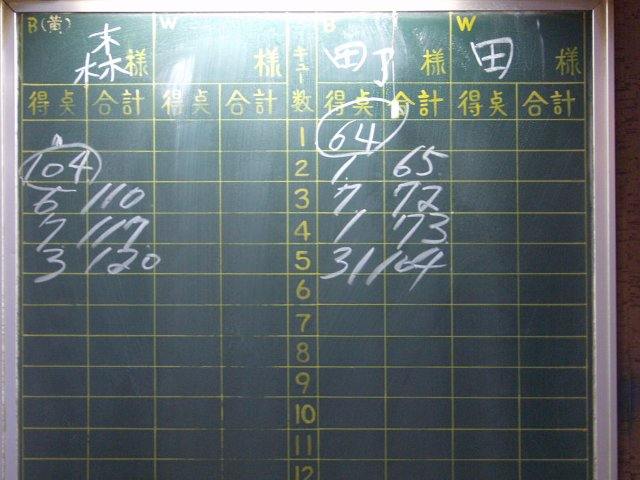 B(黄) W キュー数 B W
森 様 様 町 様 田 様
得点 合計 得点 合計 得点 合計 得点 合計
1 64
104 2 1 65
6 110 3 7 72
7 117 4 1 73
3 120 5 31 104
6
7
8
9
10
11
12